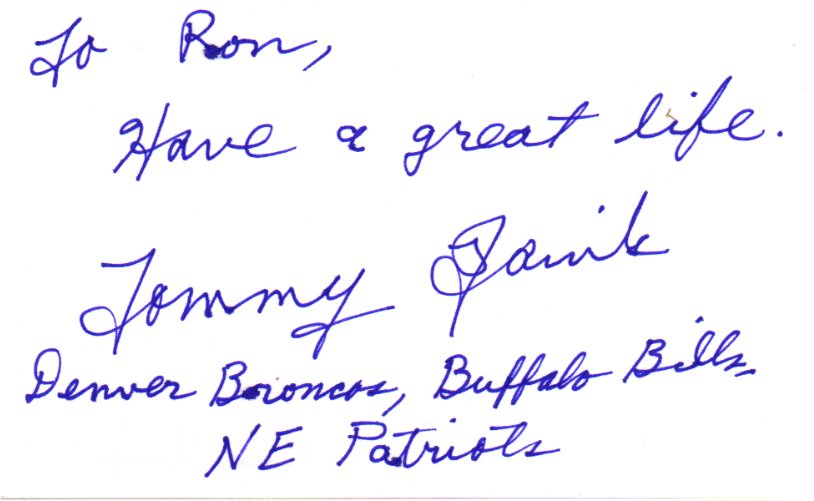 To Ron,
Have a great life.
Tommy Janik
Denver Broncos, Buffalo Bills,
NE Patriots